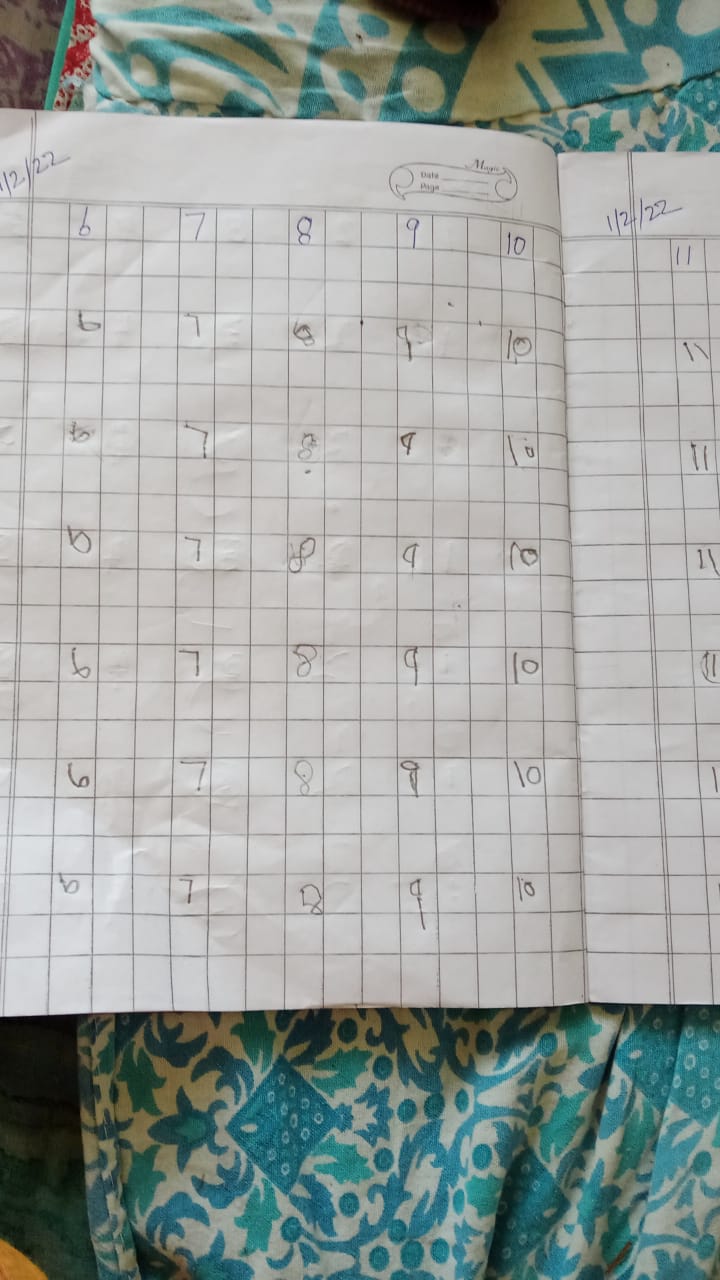 1/2/22
Magic
Date
Page
6 7 8 9 10
6 7 8 9 10
6 7 8 9 10
6 7 8 9 10
6 7 8 9 10
6 7 8 9 10
6 7 8 9 10
1/2/22
11
11
11
11
11
1